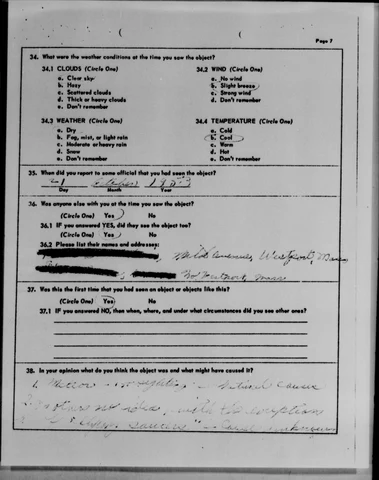 Page 7
34. What were the weather conditions at the time you saw the object?
34.1 CLOUDS (Circle One)
a. Clear sky
b. Hazy
c. Scattered clouds
d. Thick or heavy clouds
e. Don't remember
34.2 WIND (Circle One)
a. No wind
b. Slight breeze
c. Strong wind
d. Don't remember
34.3 WEATHER (Circle One)
a. Dry
b. Fog, mist, or light rain
c. Moderate or heavy rain
d. Snow
e. Don't remember
34.4 TEMPERATURE (Circle One)
a. Cold
b. Cool
c. Warm
d. Hot
e. Don't remember
35. When did you report to some official that you had seen the object?
Day Month Year
36. Was anyone else with you at the time you saw the object?
(Circle One) Yes No
36.1 IF you answered YES, did they see the object too?
(Circle One) Yes No
36.2 Please list their names and addresses:
Westport, Mass
Westport, Mass
37. Was this the first time that you had seen an object or objects like this?
(Circle One) Yes No
37.1 IF you answered NO, then when, where, and under what circumstances did you see other ones?
38. In your opinion what do you think the object was and what might have caused it?
1.
no idea, with the exception
"flying saucers"